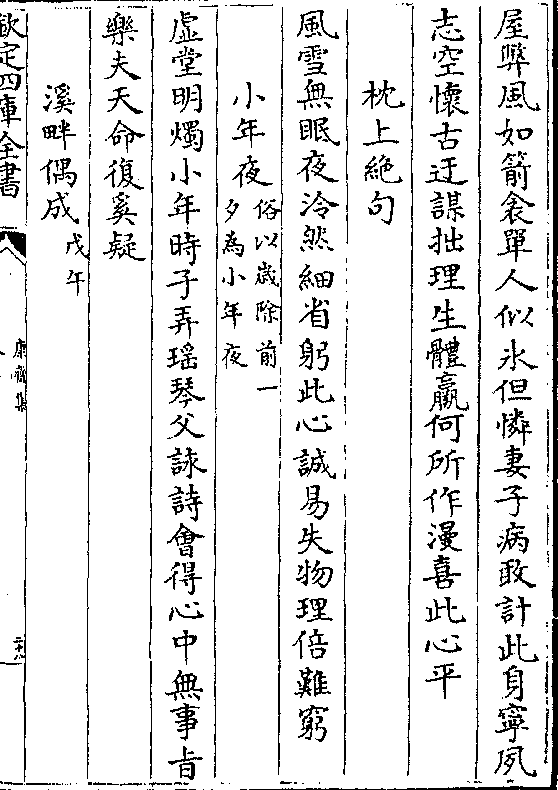 屋弊風如箭衾單人似氷但憐妻子病敢計此身寧夙
志空懷古迂謀拙理生體羸何所作漫喜此心平
枕上絶句
風雪無眠夜泠然細省躬此心誠易失物理倍難窮
小年夜俗以歲除前一夕為小年夜
虚堂明燭小年時子弄瑶琴父詠詩會得心中無事旨
樂夫天命復奚疑
溪畔偶成戊午
欽定四庫全書
康齋集